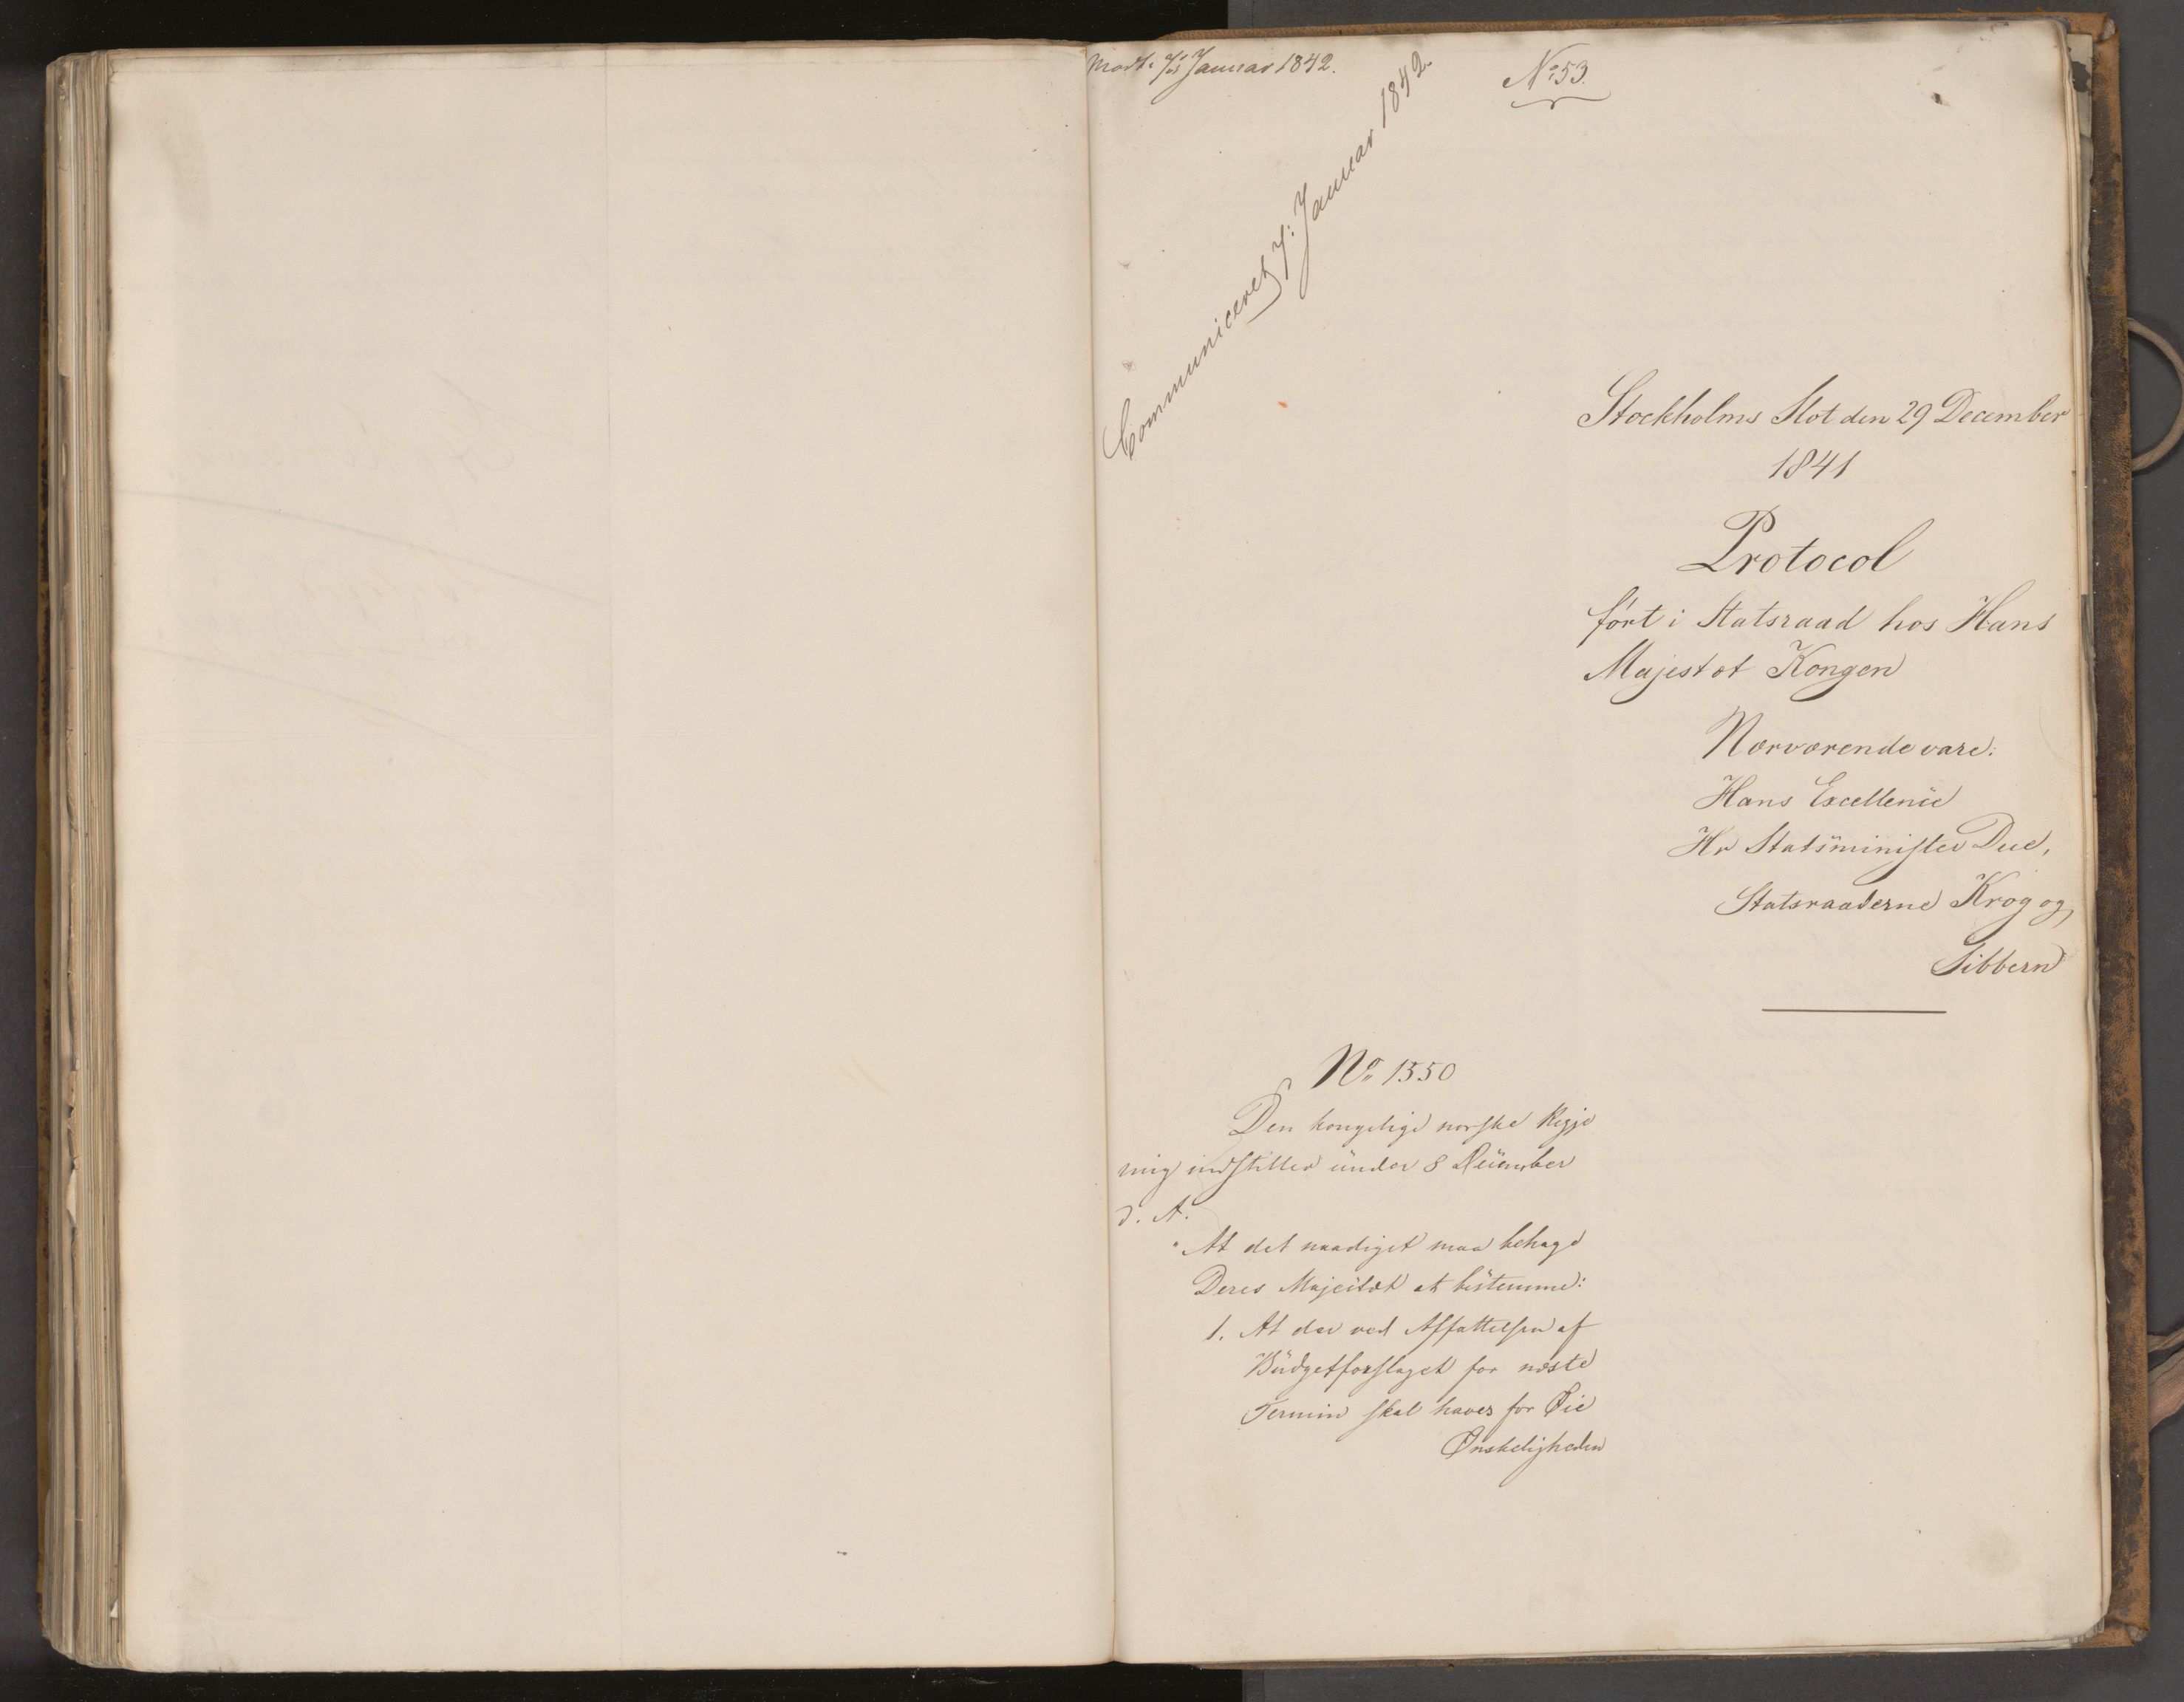 Modt. Januar 1842.
No 53.
Communiceret 7: Januar 1842.
Stockholms Slot den 29 December
1841
Protocol
ført i Statsraad hos Hans
Majestæt Kongen
Nærværende vare:
Hans Excellence
Hr Statsminister Due,
Statsraaderne Krog og
Sibbern
No 1550
Den kongelige norske Regje
ring indstiller under 8 December
d. A.
"At det naadigst maa behage
Deres Majestæt at bestemme:
1. At der ved Affattelsen af
Budgetforslaget for næste
Termin skal haves for Øie
Ønskeligheden